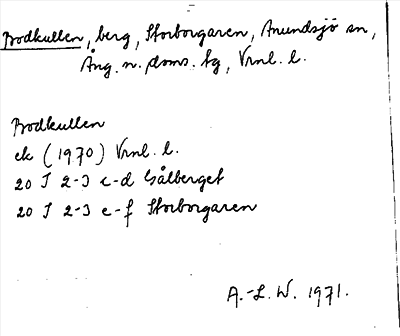 Bodkullen, berg, Storborgaren, Anundsjö sn,
Ång. n. doms. tg, Vrnl. l.
Bodkullen
ek (1970) Vrnl. l.
20 J 2-3 c-d Gålberget
20 J 2-3 e-f Storborgaren
A.-L. W. 1971.